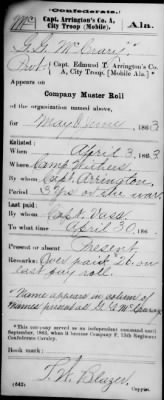 (Confederate.)
Mc Capt. Arrington's Co. A, City Troop (Mobile). Ala.
G. G. McCrary
Pvt., Capt. Edmund T. Arrington's Co. A, City Troop. [Mobile Ala.]
Appears on
Company Muster Roll
of the organization named above,
for May & June, 1863
Enlisted:
When April 3, 1863
Where Camp Withers
By whom Capt. Arrington
Period 3 Yrs or the war
Last paid:
By whom Capt. Vass
To what time April 30, 186
Present or absent Present
Remarks: Over paid 26 on
last pay roll.
"Name appears in column of
names present as G. G. McCrary
*This company served as an independent command until
September, 1863, when it became Company F, 15th Regiment
Confederate Cavalry.
Book mark:
T. W. Blazer
(642) Copyist.